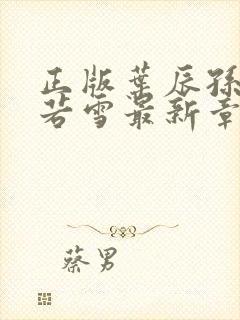 正版叶辰孙
若雪最新章
蔡男